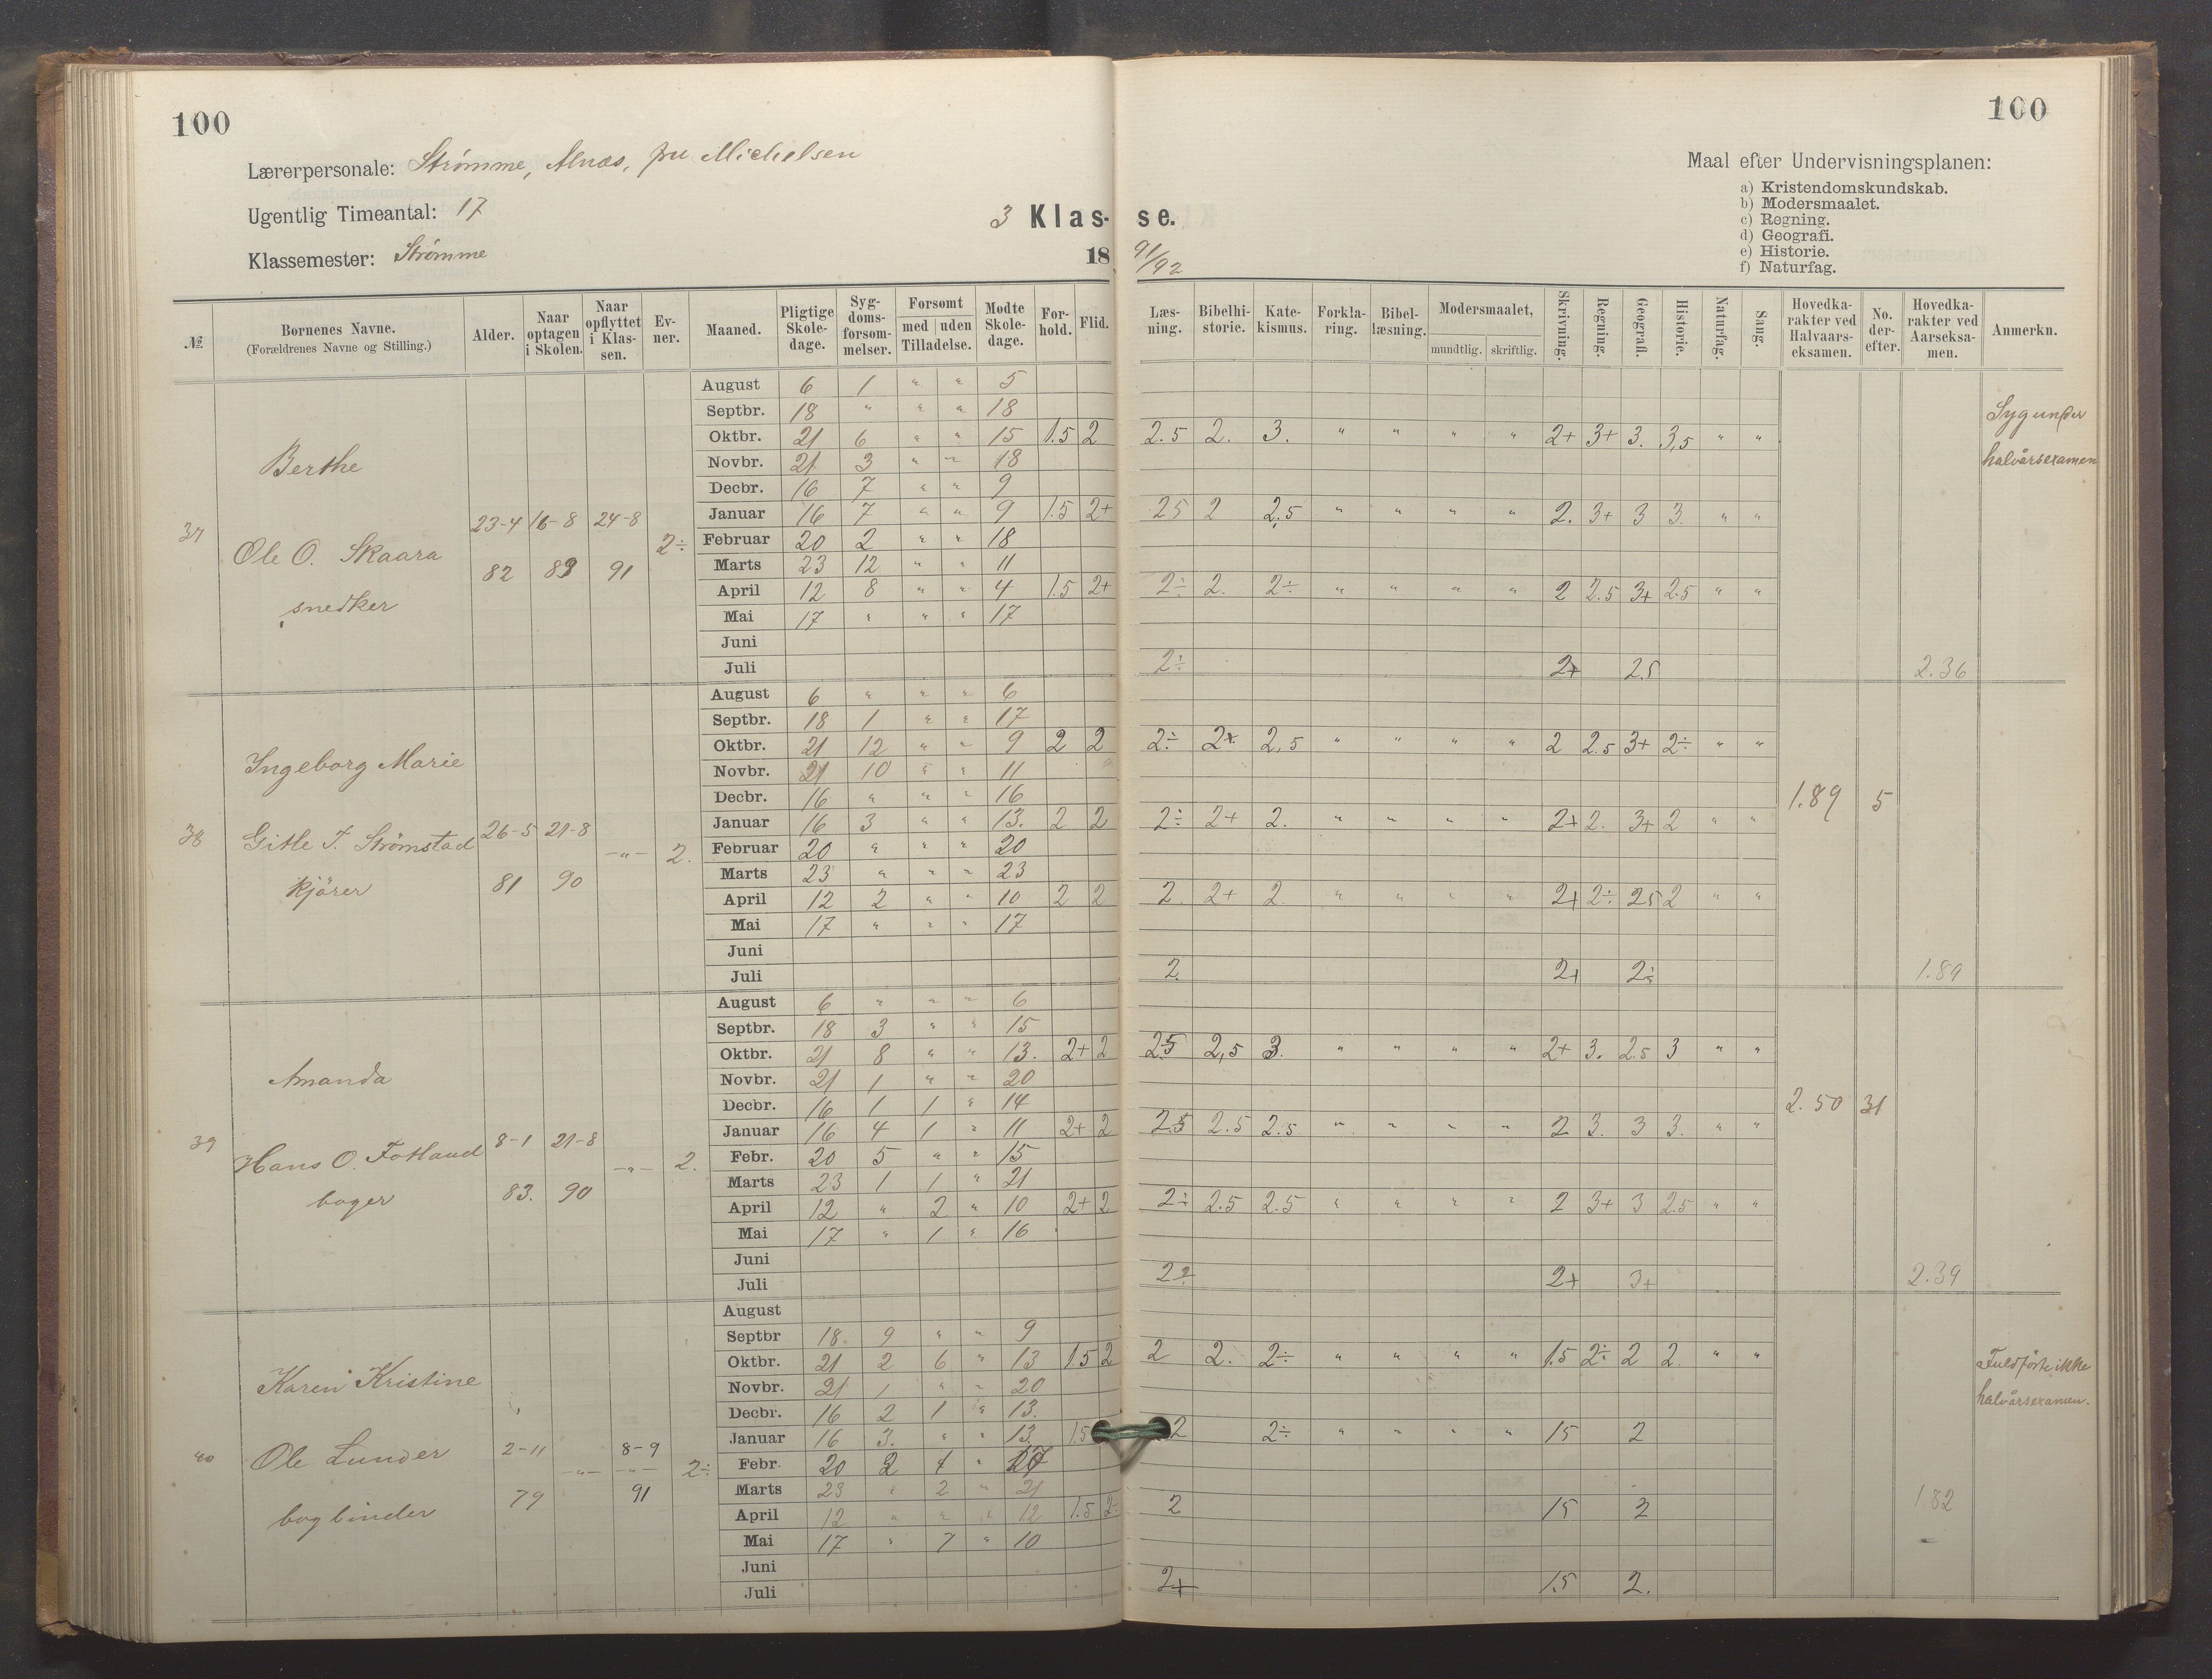 100
100
Lærerpersonale: Strømme, Alnæs, fru Michelsen
Ugentlig Timeantal: 17
Klassemester: Strømme
3 Klas-se.
1891/92
Maal efter Undervisningsplanen:
a) Kristendomskundskab.
b) Modersmaalet.
c) Regning.
d) Geografi.
e) Historie.
f) Naturfag.
№. Børnenes Navne. (Forældrenes Navne og Stilling.) Alder. Naar optagen i Skolen. Naar opflyttet i Klas-sen. Ev-ner. Maaned. Pligtige Skole-dage. Syg-doms-forsøm-melser. Forsømt med uden Tilladelse. Mødte Skole-dage. For-hold. Flid. Læs-ning. Bibelhi-storie. Kate-kismus. Forkla-ring. Bibel-læsning. Modersmaalet, mundtlig. skriftlig. Skrivning. Regning. Geografi. Historie. Naturfag. Sang. Hovedka-rakter ved Halvaars-eksamen. No. der-efter. Hovedka-rakter ved Aarseksa-men. Anmerkn.
37 Berthe
Ole O. Skaara
snedker
23-4 82 16-8 89 24-8 91 2÷
August 6 1 " " 5
Septbr. 18 " " " 18
Oktbr. 21 6 " " 15 1.5 2 2.5 2. 3. " " " " 2+ 3+ 3. 3,5 " "
Novbr. 21 3 " " 18
Decbr. 16 7 " " 9
Januar 16 7 " " 9 1.5 2+ 25 2 2.5 " " " " 2. 3+ 3 3. " "
Februar 20 2 " " 18
Marts 23 12 " " 11
April 12 8 " " 4 1.5 2+ 2÷ 2. 2÷ " " " " 2 2.5 3+ 2.5 " "
Mai 17 " " " 17
Juni
Juli 2÷ 2+ 25 2.36
Syg under
halvårsexamen
38 Ingeborg Marie
Gitle T. Strømstad
kjörer
26-5 81 21-8 90 -"- 2.
August 6 " " " 6
Septbr. 18 1 " " 17
Oktbr. 21 12 " " 9 2 2 2÷ 2+ 2,5 " " " " 2 2.5 3+ 2÷ " "
Novbr. 21 10 " " 11
Decbr. 16 " " " 16
Januar 16 3 " " 13. 2 2 2÷ 2+ 2. " " " " 2+ 2. 3+ 2 " "
Februar 20 " " " 20
Marts 23 " " " 23
April 12 2 " " 10 2 2 2 2+ 2 " " " " 2+ 2÷ 25 2 " "
Mai 17 " " " 17
Juni
Juli 2. 2+ 2÷
1.89 5 1.89
39 Amanda
Hans O. Fotland
bager
8-1 83. 21-8 90 -"- 2.
August 6 " " " 6
Septbr. 18 3 " " 15
Oktbr. 21 8 " " 13. 2+ 2 25 2,5 3. " " " " 2+ 3. 2.5 3 " "
Novbr. 21 1 " " 20
Decbr. 16 1 1 " 14
Januar 16 4 1 " 11 2+ 2 2.5 2.5 2.5 " " " " 2 3. 3 3. " "
Febr. 20 5 " " 15
Marts 23 1 1 " 21
April 12 " 2 " 10 2+ 2 2÷ 2.5 2.5 " " " " 2 3+ 3 2.5 " "
Mai 17 " 1 " 16
Juni
Juli 2÷ 2+ 3+
2.50 31 2.39
40 Karen Kristine
Ole Lunder
bogbinder
2-11 79 -"- 8-9 91 2÷
August
Septbr 18. 9 " " 9
Oktbr. 21 2 6 " 13 1.5 2 2 2. 2÷ " " " " 1.5 2÷ 2 2. " "
Novbr. 21 1 " " 20
Decbr. 16 2 1 " 13.
Januar 16 3. " " 13. 1.5 2 2÷ " " " " 15 2
Febr. 20 2 1 " 17
Marts 23 " 2 " 21
April 12 " " " 12 1.5 2÷ 2 15 2
Mai 17 " 7 " 10
Juni
Juli 2+ 1.5 2.
1.82
Fuldförte ikke
halvårsexamen.